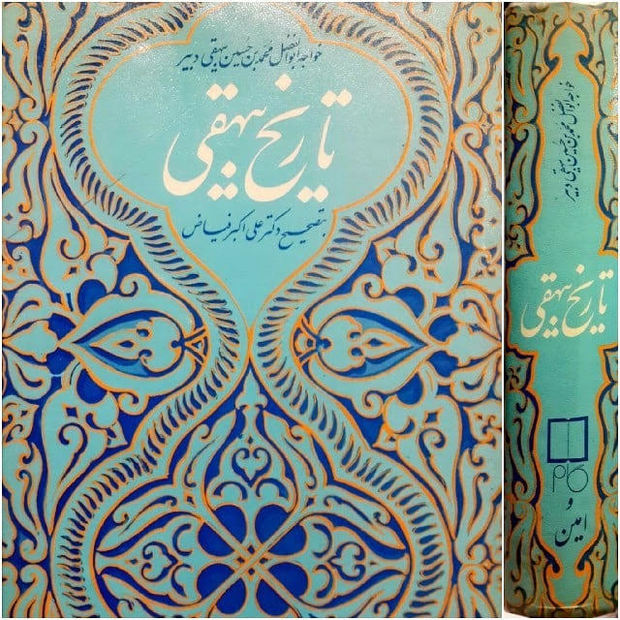 خواجه ابوالفضل محمد بن حسین بیهقی دبیر
تاریخ بیهقی
تصحیح دکتر علی اکبر فیاض
خواجه ابوالفضل محمد بن حسین بیهقی دبیر
تاریخ بیهقی
گام
و
امین